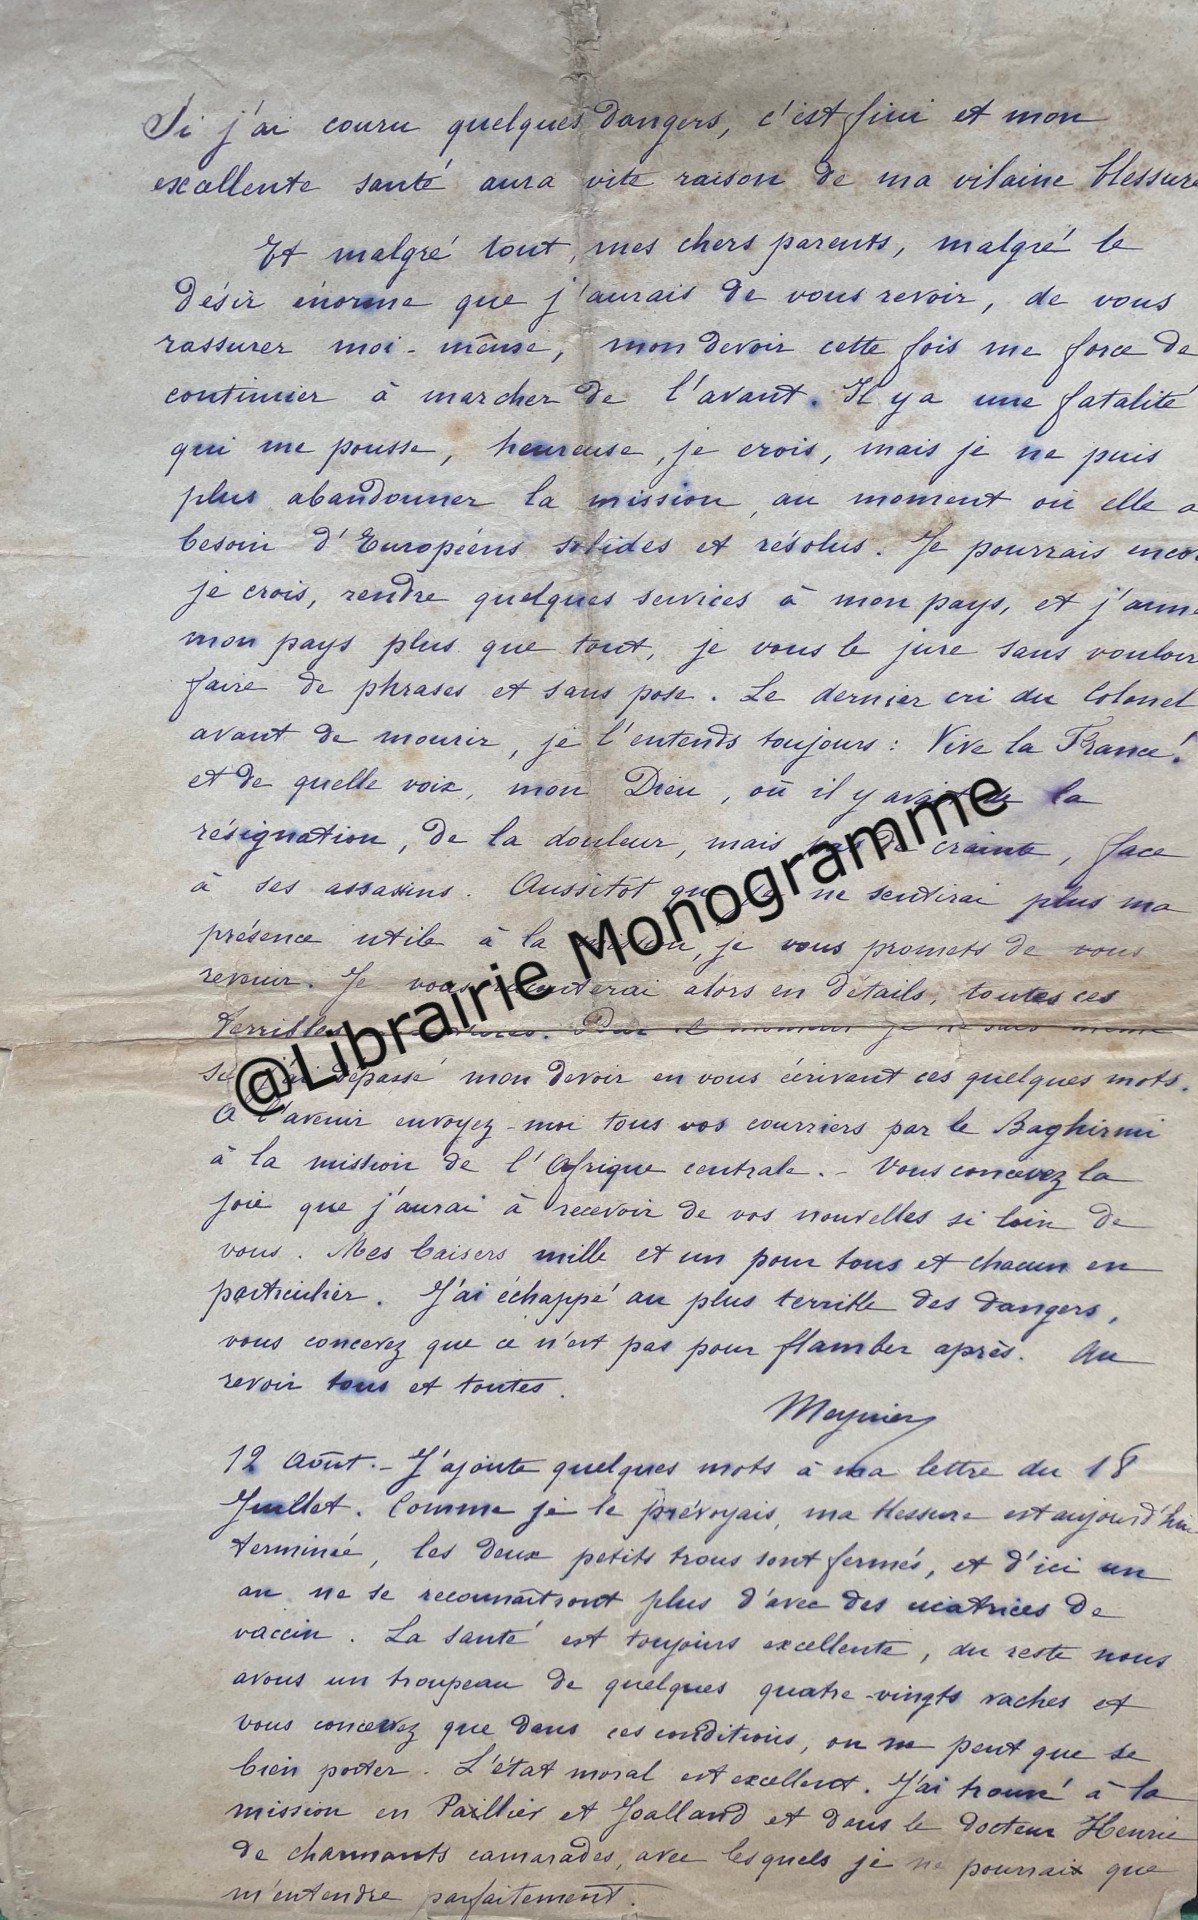 Si j'ai couru quelques dangers, c'est fini et mon
excellente santé aura vite raison de ma vilaine blessure
Et malgré tout, mes chers parents, malgré le
désir énorme que j'aurais de vous revoir, de vous
rassurer moi-même, mon devoir cette fois me force de
continuer à marcher de l'avant. Il y a une fatalité
qui me pousse, heureuse, je crois, mais je ne puis
plus abandonner la mission, au moment où elle a
besoin d'Européens solides et résolus. Je pourrais enco
je crois, rendre quelques services à mon pays, et j'aime
mon pays plus que tout, je vous le jure sans vouloir
faire de phrases et sans pose. Le dernier cri du Colonel
avant de mourir, je l'entends toujours : Vive la France!
et de quelle voix, mon Dieu, où il y avait de la
résignation, de la douleur, mais pas de crainte, face
à ses assassins. Aussitôt que je ne sentirai plus ma
présence utile à la mission, je vous promets de vous
revenir. Je vous raconterai alors en détails, toutes ces
terribles Pour le moment je ne sais même
si j'ai dépassé mon devoir en vous écrivant ces quelques mots.
A l'avenir envoyez-moi tous vos courriers par le Baghirmi
à la mission de l'Afrique centrale. - Vous concevez la
joie que j'aurai à recevoir de vos nouvelles si loin de
vous. Mes baisers mille et un pour tous et chacun en
particulier. J'ai échappé au plus terrible des dangers,
vous concevez que ce n'est pas pour flamber après. Au
revoir tous et toutes.
Meynier
12 Août. - J'ajoute quelques mots à ma lettre du 18
Juillet. Comme je le prévoyais, ma blessure est aujourd'hui
terminée, les deux petits trous sont fermés, et d'ici un
an ne se reconnaîtront plus d'avec des cicatrices de
vaccin. La santé est toujours excellente, du reste nous
avons un troupeau de quelques quatre-vingts vaches et
vous concevez que dans ces conditions, on ne peut que se
bien porter. L'état moral est excellent. J'ai trouvé à la
mission en Paillier et Joalland et dans le docteur Henric
de charmants camarades, avec lesquels je ne pourrais que
m'entendre parfaitement.
@Librairie Monogramme